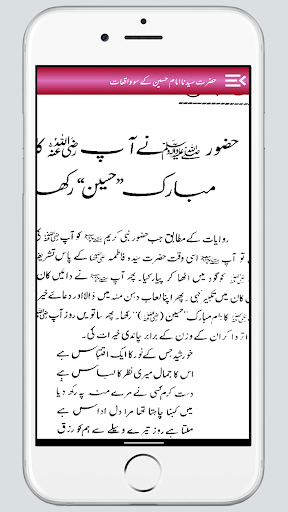 حضرت سیدنا امام حسین کے سو واقعات
حضور ﷺ نے آپ رضی اللہ عنہ کا
مبارک ”حسین“ رکھ
روایات کے مطابق جب حضور نبی کریم ﷺ کو آپ
تو آپ ﷺ اسی وقت حضرت سیدہ فاطمہ کے پاس تشریف
کو گود میں اٹھا کر پیار کیا۔ پھر آپ ﷺ نے دائیں کان
کان میں تکبیر کہی۔ پھر اپنا لعاب دہن منہ میں ڈالا اور دعائے خیر
کا نام مبارک ”حسین ( )“ رکھا۔ پھر ساتویں روز آپ
اتروا کر ان کے وزن کے برابر چاندی خیرات کی۔
خورشید جس کے نور کا ایک اقتباس ہے
اس کا جمال میری نظر کا لباس ہے
دست کرم کسی نے مرے منہ پہ رکھ دیا
میں کہنا چاہتا تھا مرا دل اداس ہے
ملتا ہے روز تیرے وسیلے سے ہم کو رزق